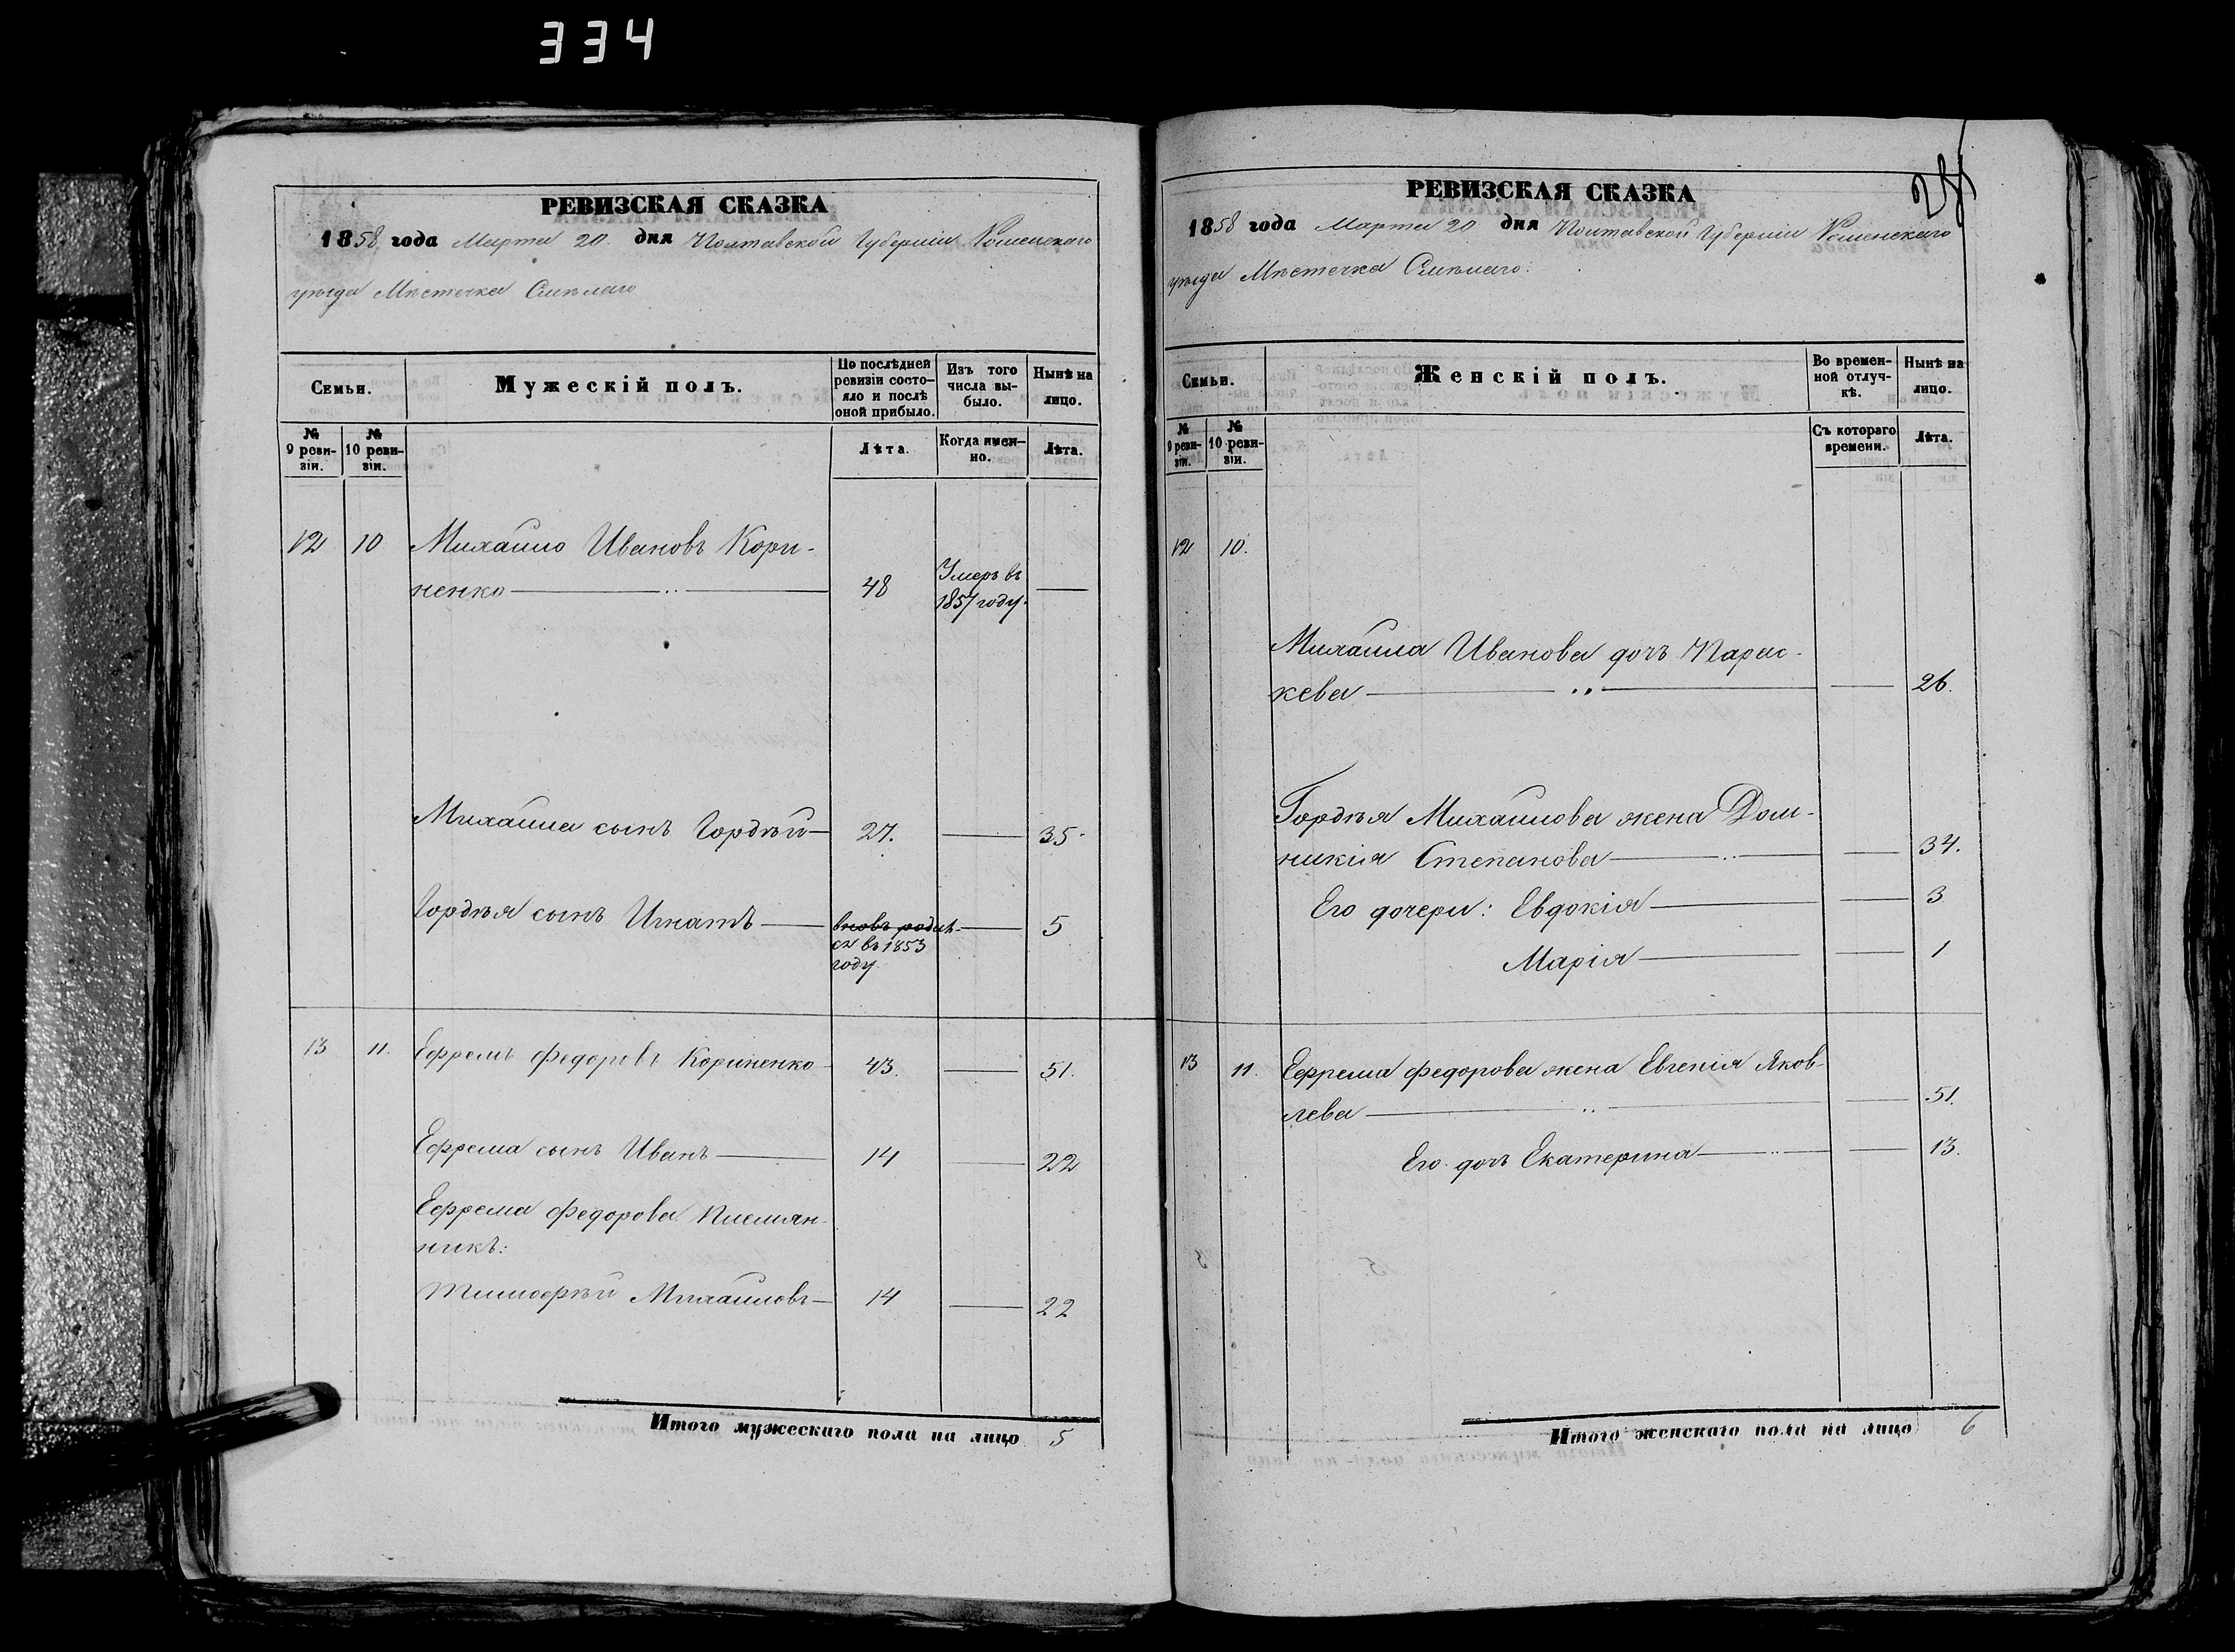 334
РЕВИЗСКАЯ СКАЗКА
1858 года Марта 20. дня Полтавской Губерніи Роменскаго
уѣзда Мѣстечка Смѣлаго
Семьи.
Мужескій полъ.
По послѣдней ревизіи состояло и послѣ оной прибыло.
Изъ того числа выбыло.
Нынѣ на лицо.
№ 9 ревизіи.
№ 10 ревизіи.
Лѣта.
Когда именно.
Лѣта.
12 10 Михайло Ивановъ Кори-
ненко 48 Умеръ въ
1857 году.
Михайла сынъ Гордѣй 27. 35
Гордѣя сынъ Игнатъ вновь родил- 5
ся въ 1853
году
13 11. Ефремъ Федоровъ Кориненко 43. 51.
Ефрема сынъ Иванъ 14 22
Ефрема Федорова племян-
никъ:
Тимофѣй Михайловъ 14 22
Итого мужескаго пола на лицо 5
РЕВИЗСКАЯ СКАЗКА
1858 года Марта 20 дня Полтавской Губерніи Роменскаго
уѣзда Мѣстечка Смѣлаго.
Семьи.
Женскій полъ.
Во временной отлучкѣ.
Нынѣ на лицо.
№ 9 ревизіи.
№ 10 ревизіи.
Съ котораго времени.
Лѣта.
12 10.
Михайла Иванова дочь Парас-
кева 26.
Гордѣя Михайлова жена Дом-
никія Степанова 34.
Его дочери: Евдокія 3
Марія 1
13 11. Ефрема Федорова жена Евгенія Яков-
лева 51.
Его дочь Екатерина 13.
Итого женскаго пола на лицо 6